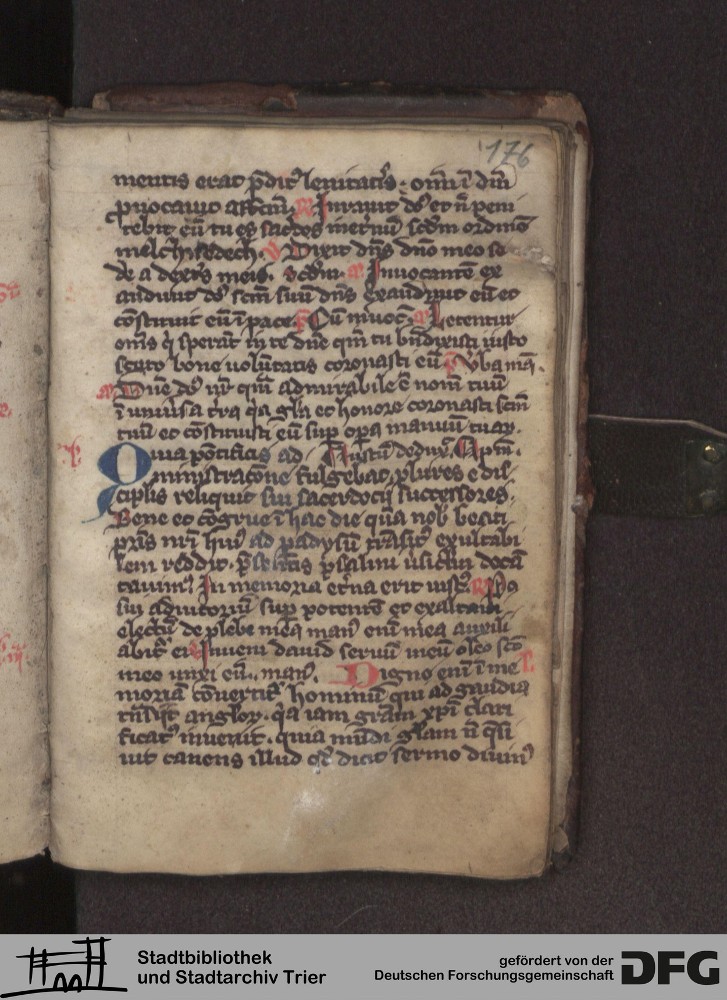 176
mentis erat p̄dit᷒ lenitatis. om̄i ī dm̄
ꝓuocauit affctm̄. R Jurauit do᷒ et n̄ peni
tebit eū tu es sacdos ineternū scdm ordinē
melchisedech. V Dixit dn̄s dn̄o meo se
de a dextris meis. scdm. a Jnuocantē ex
audiuit do᷒ scm̄ suū dn̄s exaudiuit eū et
cōstituit eū ī pace. p̄ Cū inuoc̄. a Letentur
om̄s q̇ sperāt in te dn̄e qm̄ tu bn̄dixisti iusto
scuto bone volūtatis coronasti eū p̄ Vba mā.
a Dn̄e do᷒ nr̄ qm̄ admirabile ē nomē tuū
ī uniuersa terra q̇a gla et honore coronasti scm̄
tuū et cōstituisti eū sup oꝑa manuū tuaꝝ.
Quia pōtificis ad
ministracōne fulgebat, plures e dis
ciplis reliquit sui sacerdocij successores.
Bene et cōgrue ī hac die qua nob beati
pr̄is nr̄i hui᷒ ad padysū trāsit᷒ exultabi
lem reddit. p̄sētis psalmi usiclm docā
tauim᷒ Jn memoria etna erit iust᷒. R Po
sui adiutoriū sup potentē et exaltaui
electū de plebe mea man᷒ eni mea auxili
abit᷒ ei V Jnueni dauid seruū meū oleo sco
meo unxi eū. man᷒. Digne eni ī me
moriā cōuertit᷒ hominū qui ad gaudia
trāsijt angloꝝ. q̇a iam grām xp̄i clari
ficat᷒ inuenit. quia mūdi glam n̄ q̄si
uit canens illud qd dicit sermo diuin᷒
Stadtbibliothek
und Stadtarchiv Trier
gefördert von der
Deutschen Forschungsgemeinschaft
DFG